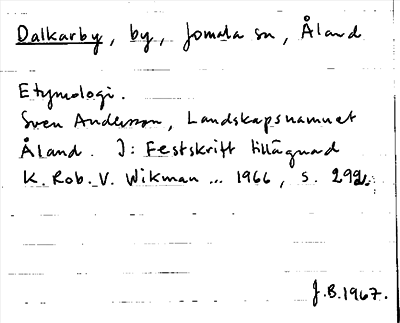 Dalkarby, by, Jomala sn, Åland
Etymologi.
Sven Andersson, Landskapsnamnet
Åland. I: Festskrift tillägnad
K. Rob. V. Wikman ... 1966, s. 292.
J.B. 1967.